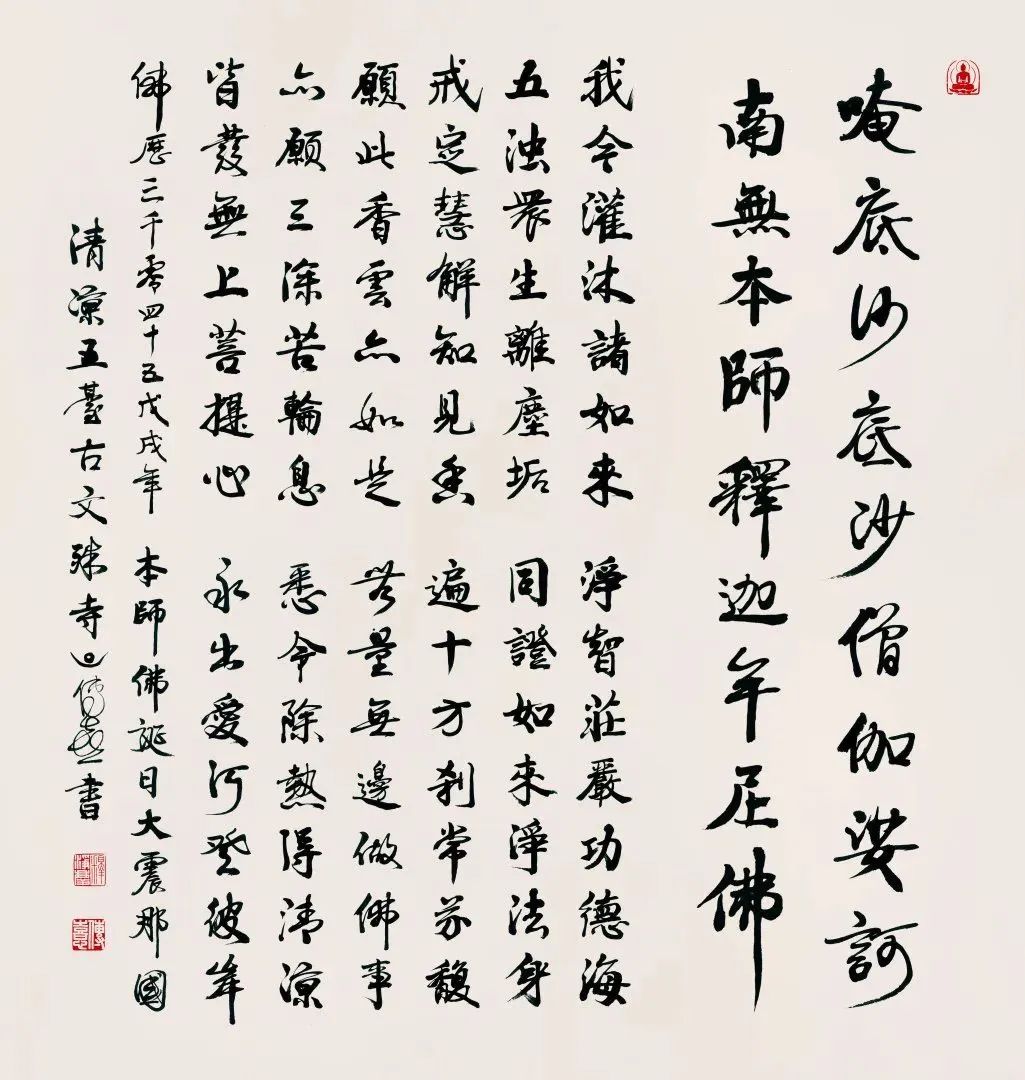 唵底沙底沙僧伽娑訶
南無本師釋迦牟尼佛
我今灌沐諸如來 淨智莊嚴功德海
五浊眾生離塵垢 同證如來淨法身
戒定慧解知見香 遍十方刹常芬馥
願此香雲亦如是 无量無邊做佛事
亦願三涂苦輪息 悉令除熱得清凉
皆發無上菩提心 永出愛河登彼岸
佛歷三千零四十五戊戌年 本師佛誕日大震那國
清凉五臺古文殊寺 書